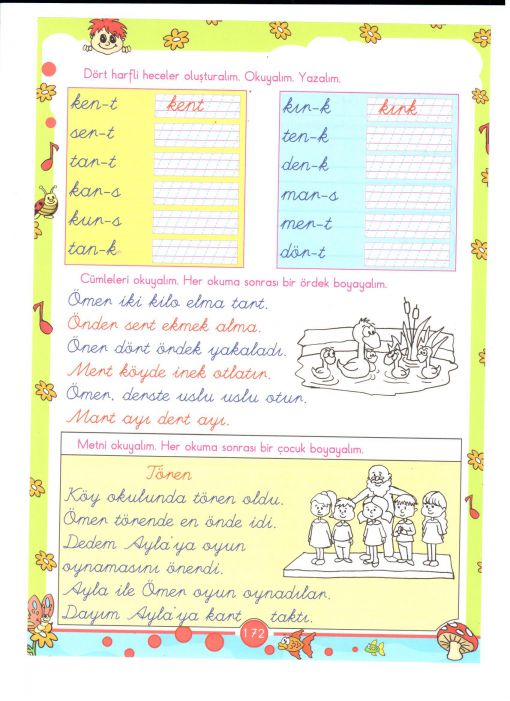 Dört harfli heceler oluşturalım. Okuyalım. Yazalım.
ken-t kent
ser-t
tar-t
kar-s
kur-s
tan-k
kır-k kırk
ten-k
den-k
mar-s
mer-t
dör-t
Cümleleri okuyalım. Her okuma sonrası bir ördek boyayalım.
Ömer iki kilo elma tart.
Önder sert ekmek alma.
Öner dört ördek yakaladı.
Mert köyde inek otlatır.
Ömer, derste uslu uslu otur.
Mart ayı dert ayı.
Metni okuyalım. Her okuma sonrası bir çocuk boyayalım.
Tören
Köy okulunda tören oldu.
Ömer törende en önde idi.
Dedem Ayla'ya oyun
oynamasını önerdi.
Ayla ile Ömer oyun oynadılar.
Dayım Ayla'ya kart taktı.
172